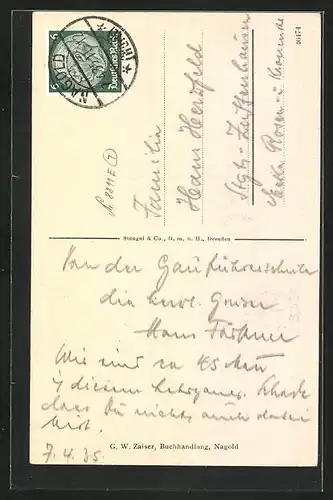 NAGOLD
Deutsches Reich
6 6
46474
Familie
Hans Herzfeld
Stgt-Zuffenhausen
Ecke Rosen- u
Stengel & Co., G. m. b. H., Dresden
Von der Gauführerschule
die herzl. Grüsse
Hans
Wir sind ca 45 Mann
in diesem Lehrgang. Schade
dass Du nicht auch dabei
bist.
G. W. Zaiser, Buchhandlung, Nagold
7.4.35.